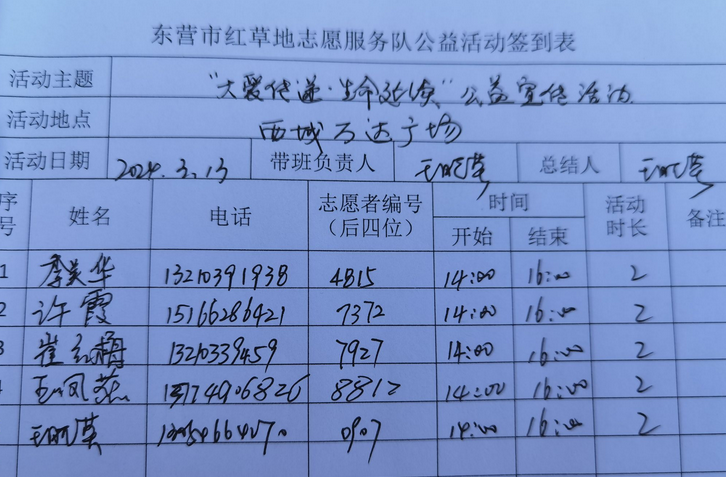 东营市红草地志愿服务队公益活动签到表
活动主题 “大爱传递·生命延续”公益宣传活动
活动地点 西城万达广场
活动日期 2024.3.13 带班负责人 总结人
序号 姓名 电话 志愿者编号（后四位） 时间 开始 结束 活动时长 备注
1 李美华 13210391938 4815 14:00 16:00 2
2 许霞 15166286421 7372 14:00 16:00 2
3 崔红梅 13210339459 7927 14:00 16:00 2
4 8812 14:00 16:00 2
0907 14:00 16:00 2